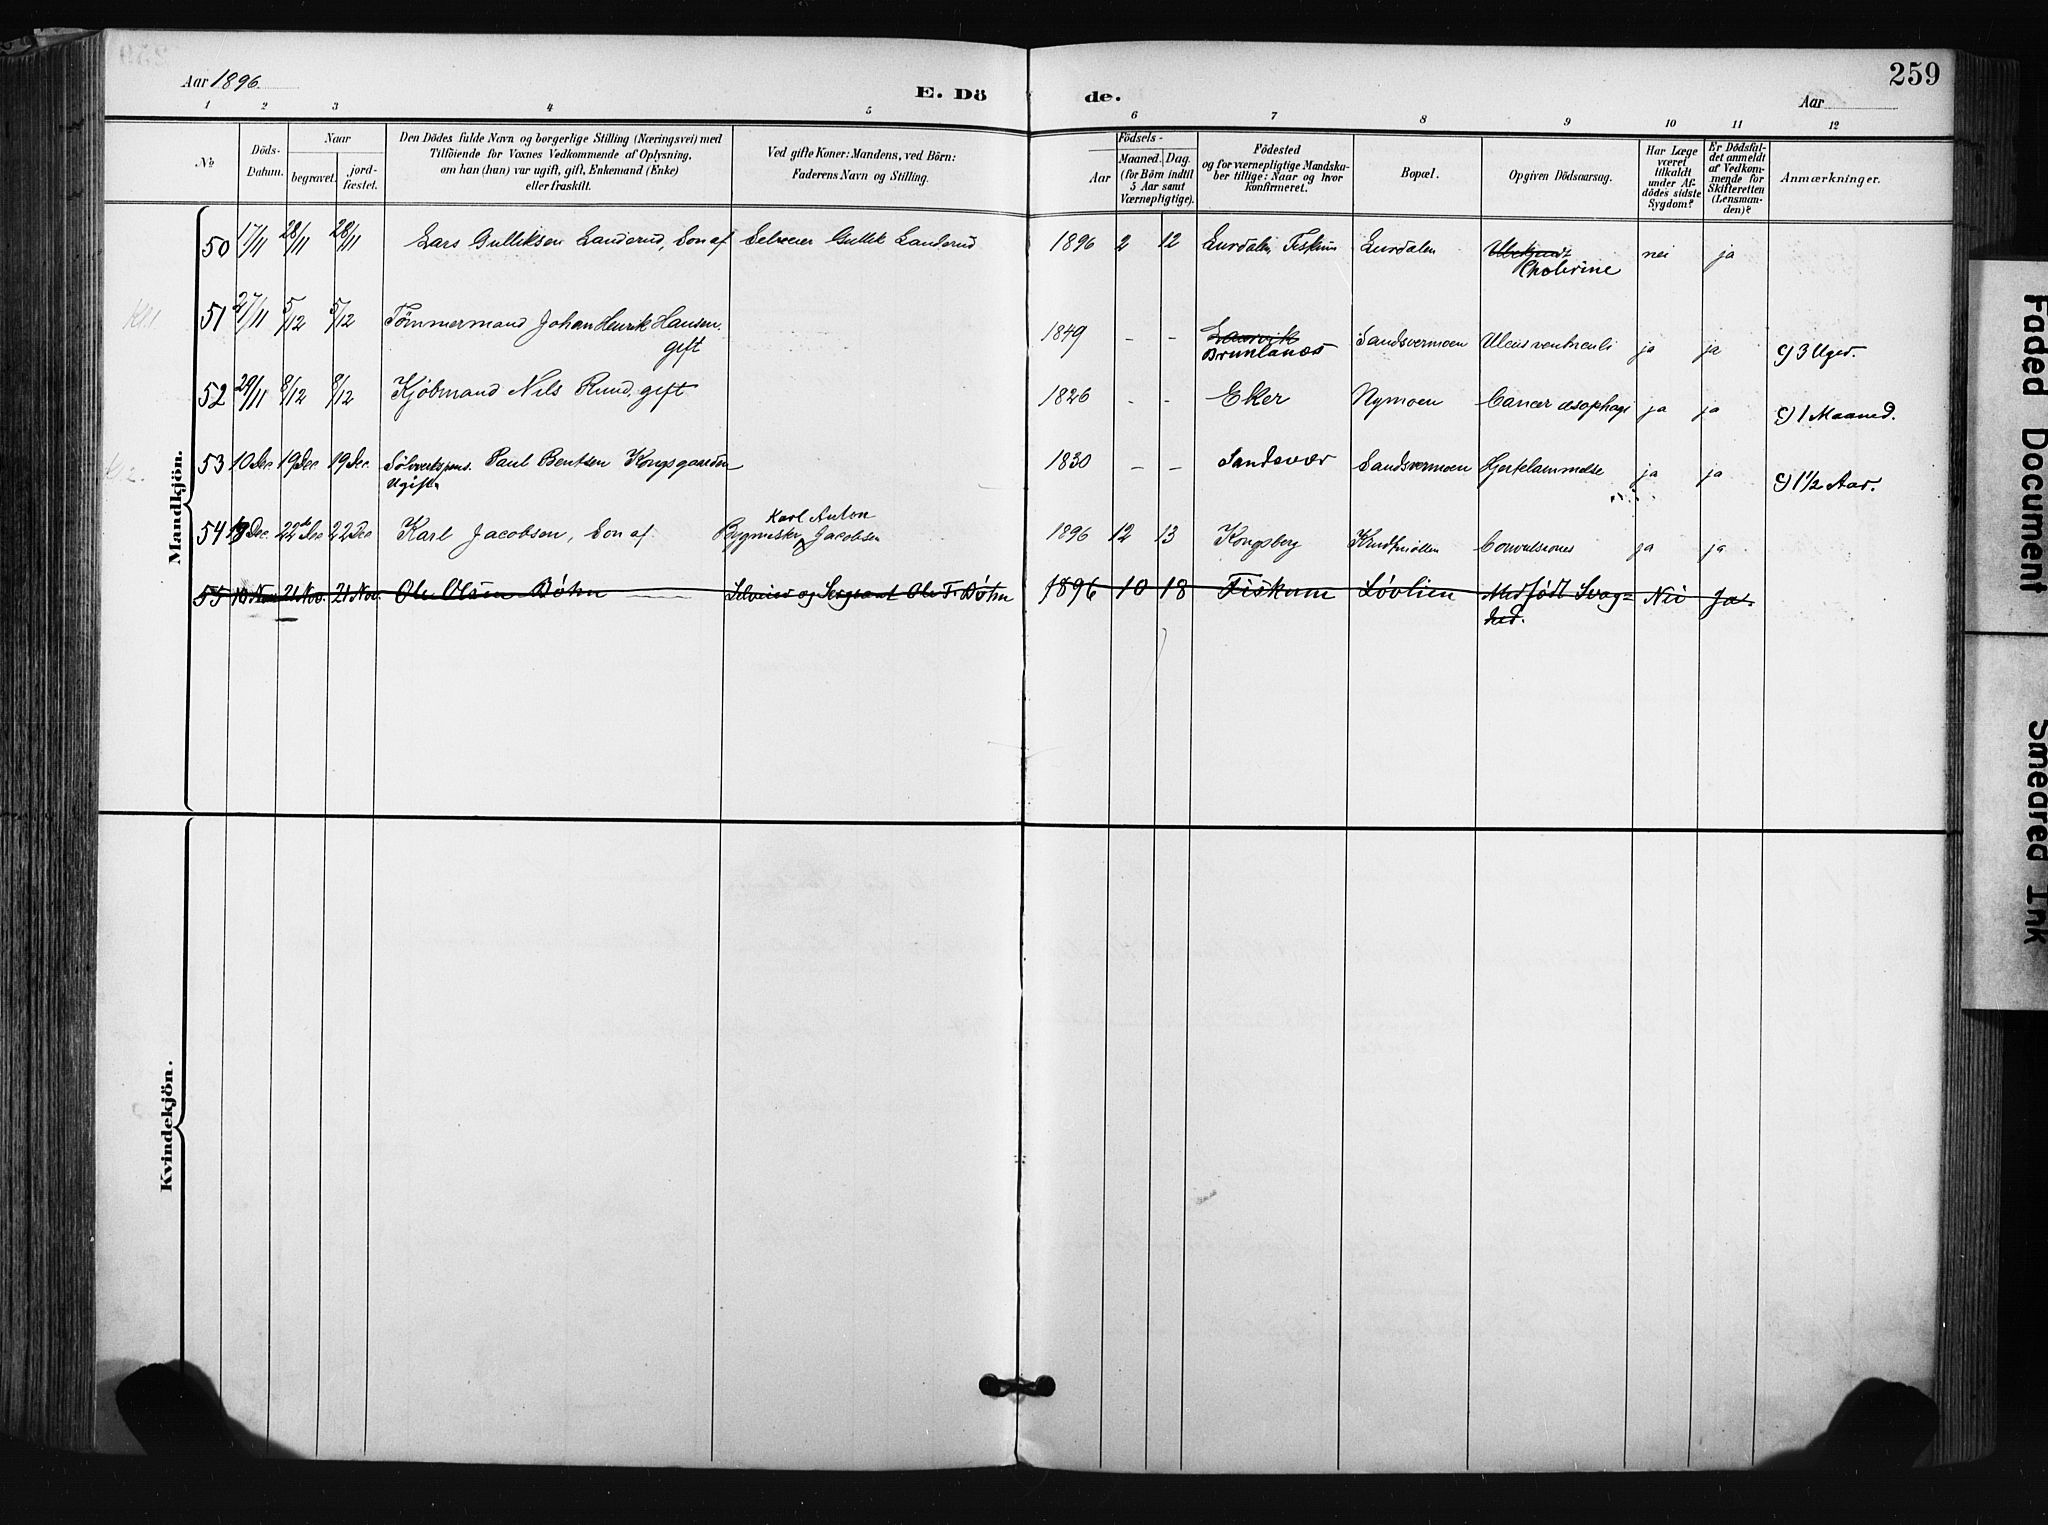 259
Aar 1896
E. Dö de.
Aar
1 2 3 4 5 6 7 8 9 10 11 12
No
Döds-Datum.
Naar
begravet.
jord-fæstet.
Den Dödes fulde Navn og borgerlige Stilling (Næringsvei) med
Tilföiende for Voxnes Vedkommende af Oplysning,
om han (hun) var ugift, gift, Enkemand (Enke)
eller fraskilt.
Ved gifte Koner: Mandens, ved Börn:
Faderens Navn og Stilling.
Födsels-
Aar
Maaned. Dag.
(for Börn indtil
5 Aar samt
Værnepligtige).
Födested
og for værnepligtige Mandska-
ber tillige: Naar og hvor
konfirmeret.
Bopæl.
Opgiven Dödsaarsag.
Har Læge
været
tilkaldt
under Af-
dödes sidste
Sygdom?
Er Dödsfal-
det anmeldt
af Vedkom-
mende for
Skifteretten
(Lensman-
den)?
Anmærkninger.
Mandkjön.
50 17/11 28/11 28/11 Lars Gulliksen Landerud, Søn af Selveier Gullik Landerud 1896 2 12 Lurdalen, Fiskum Lurdalen Ubekjendt nei ja
Cholerine
51 27/11 5/12 5/12 Tömmermand Johan Henrik Hansen,
gift 1849 - - Laurvik Sandsvermoen Ulcus ventriculi ja ja c) 3 Uger.
Brunlanæs
52 29/11 8/12 8/12 Kjöbmand Nils Ruud, gift 1826 - - Eker Nymoen Cancer æsophagi ja ja c) 1 Maaned.
53 10 Dec 19 Dec. 19 Dec. Sölvverkspens. Paul Bentsen Kongsgaarden 1830 - - Sandsvær Sandsvermoen Hjertelammelse ja ja c) 1 1/2 Aar.
Ugift
Karl Anton
54 Dec. 22de Dec 22 Dec Karl Jacobsen, Søn af Bygmester Jacobsen 1896 12 13 Kongsberg Krudtmöllen Convulsiones ja ja
55 10 Nov. 21 Nov. 21 Nov. Ole Olsen Bøhn Selveier og Sergeant Ole T. Bøhn 1896 10 18 Fiskum Løvlien Medfødt Svag=
hed. Nei Ja.
Kvindekjön.
Faded Document
Smeared Ink